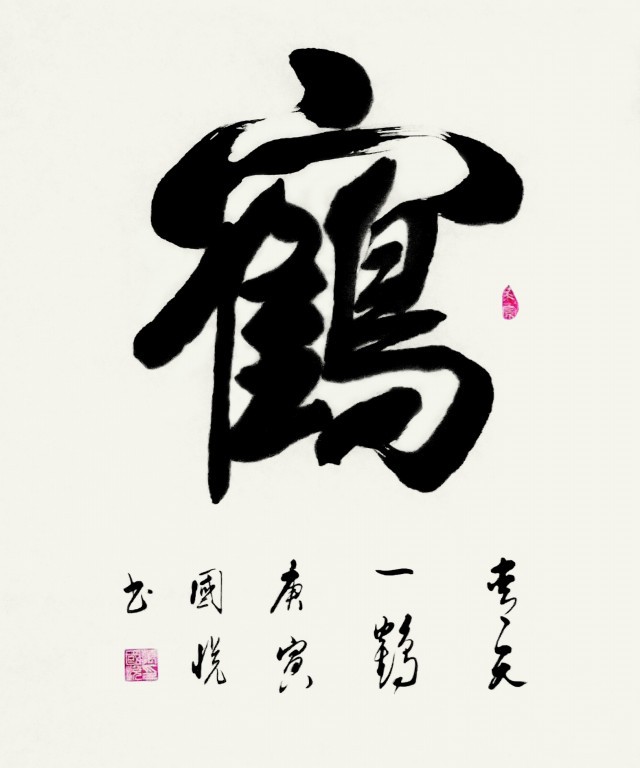 鶴
青天
一鶴
庚寅
國悅
书